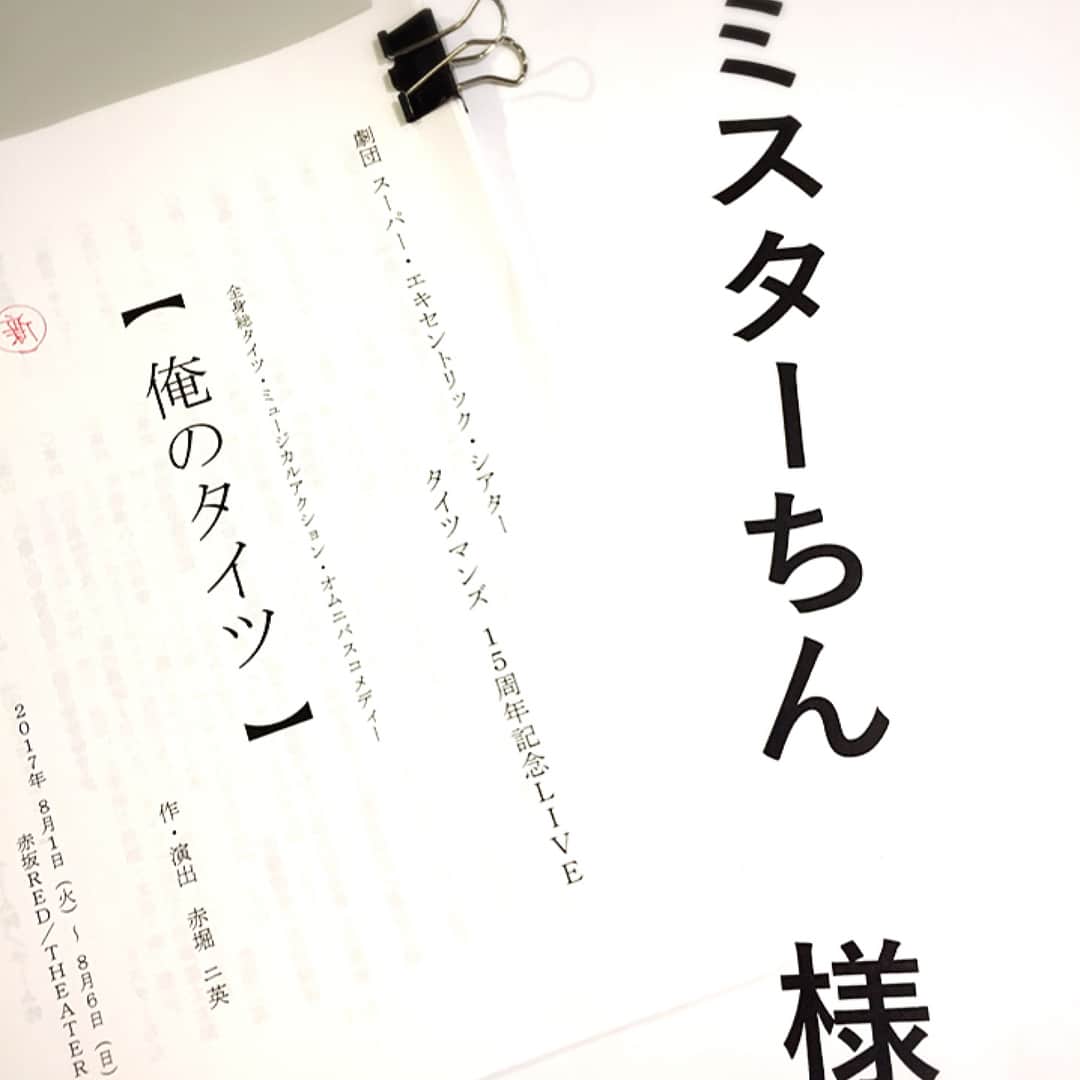 ミスターちん 様
劇団 スーパー・エキセントリック・シアター
タイツマンズ 15周年記念LIVE
全身総タイツ・ミュージカルアクション・オムニバスコメディー
【俺のタイツ】
作・演出 赤堀 二英
2017年 8月1日（火）〜 8月6日（日）
赤坂RED/THEATER